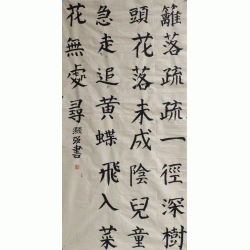 籬落疏疏一徑深樹
頭花落未成陰兒童
急走追黃蝶飛入菜
花無處尋
書